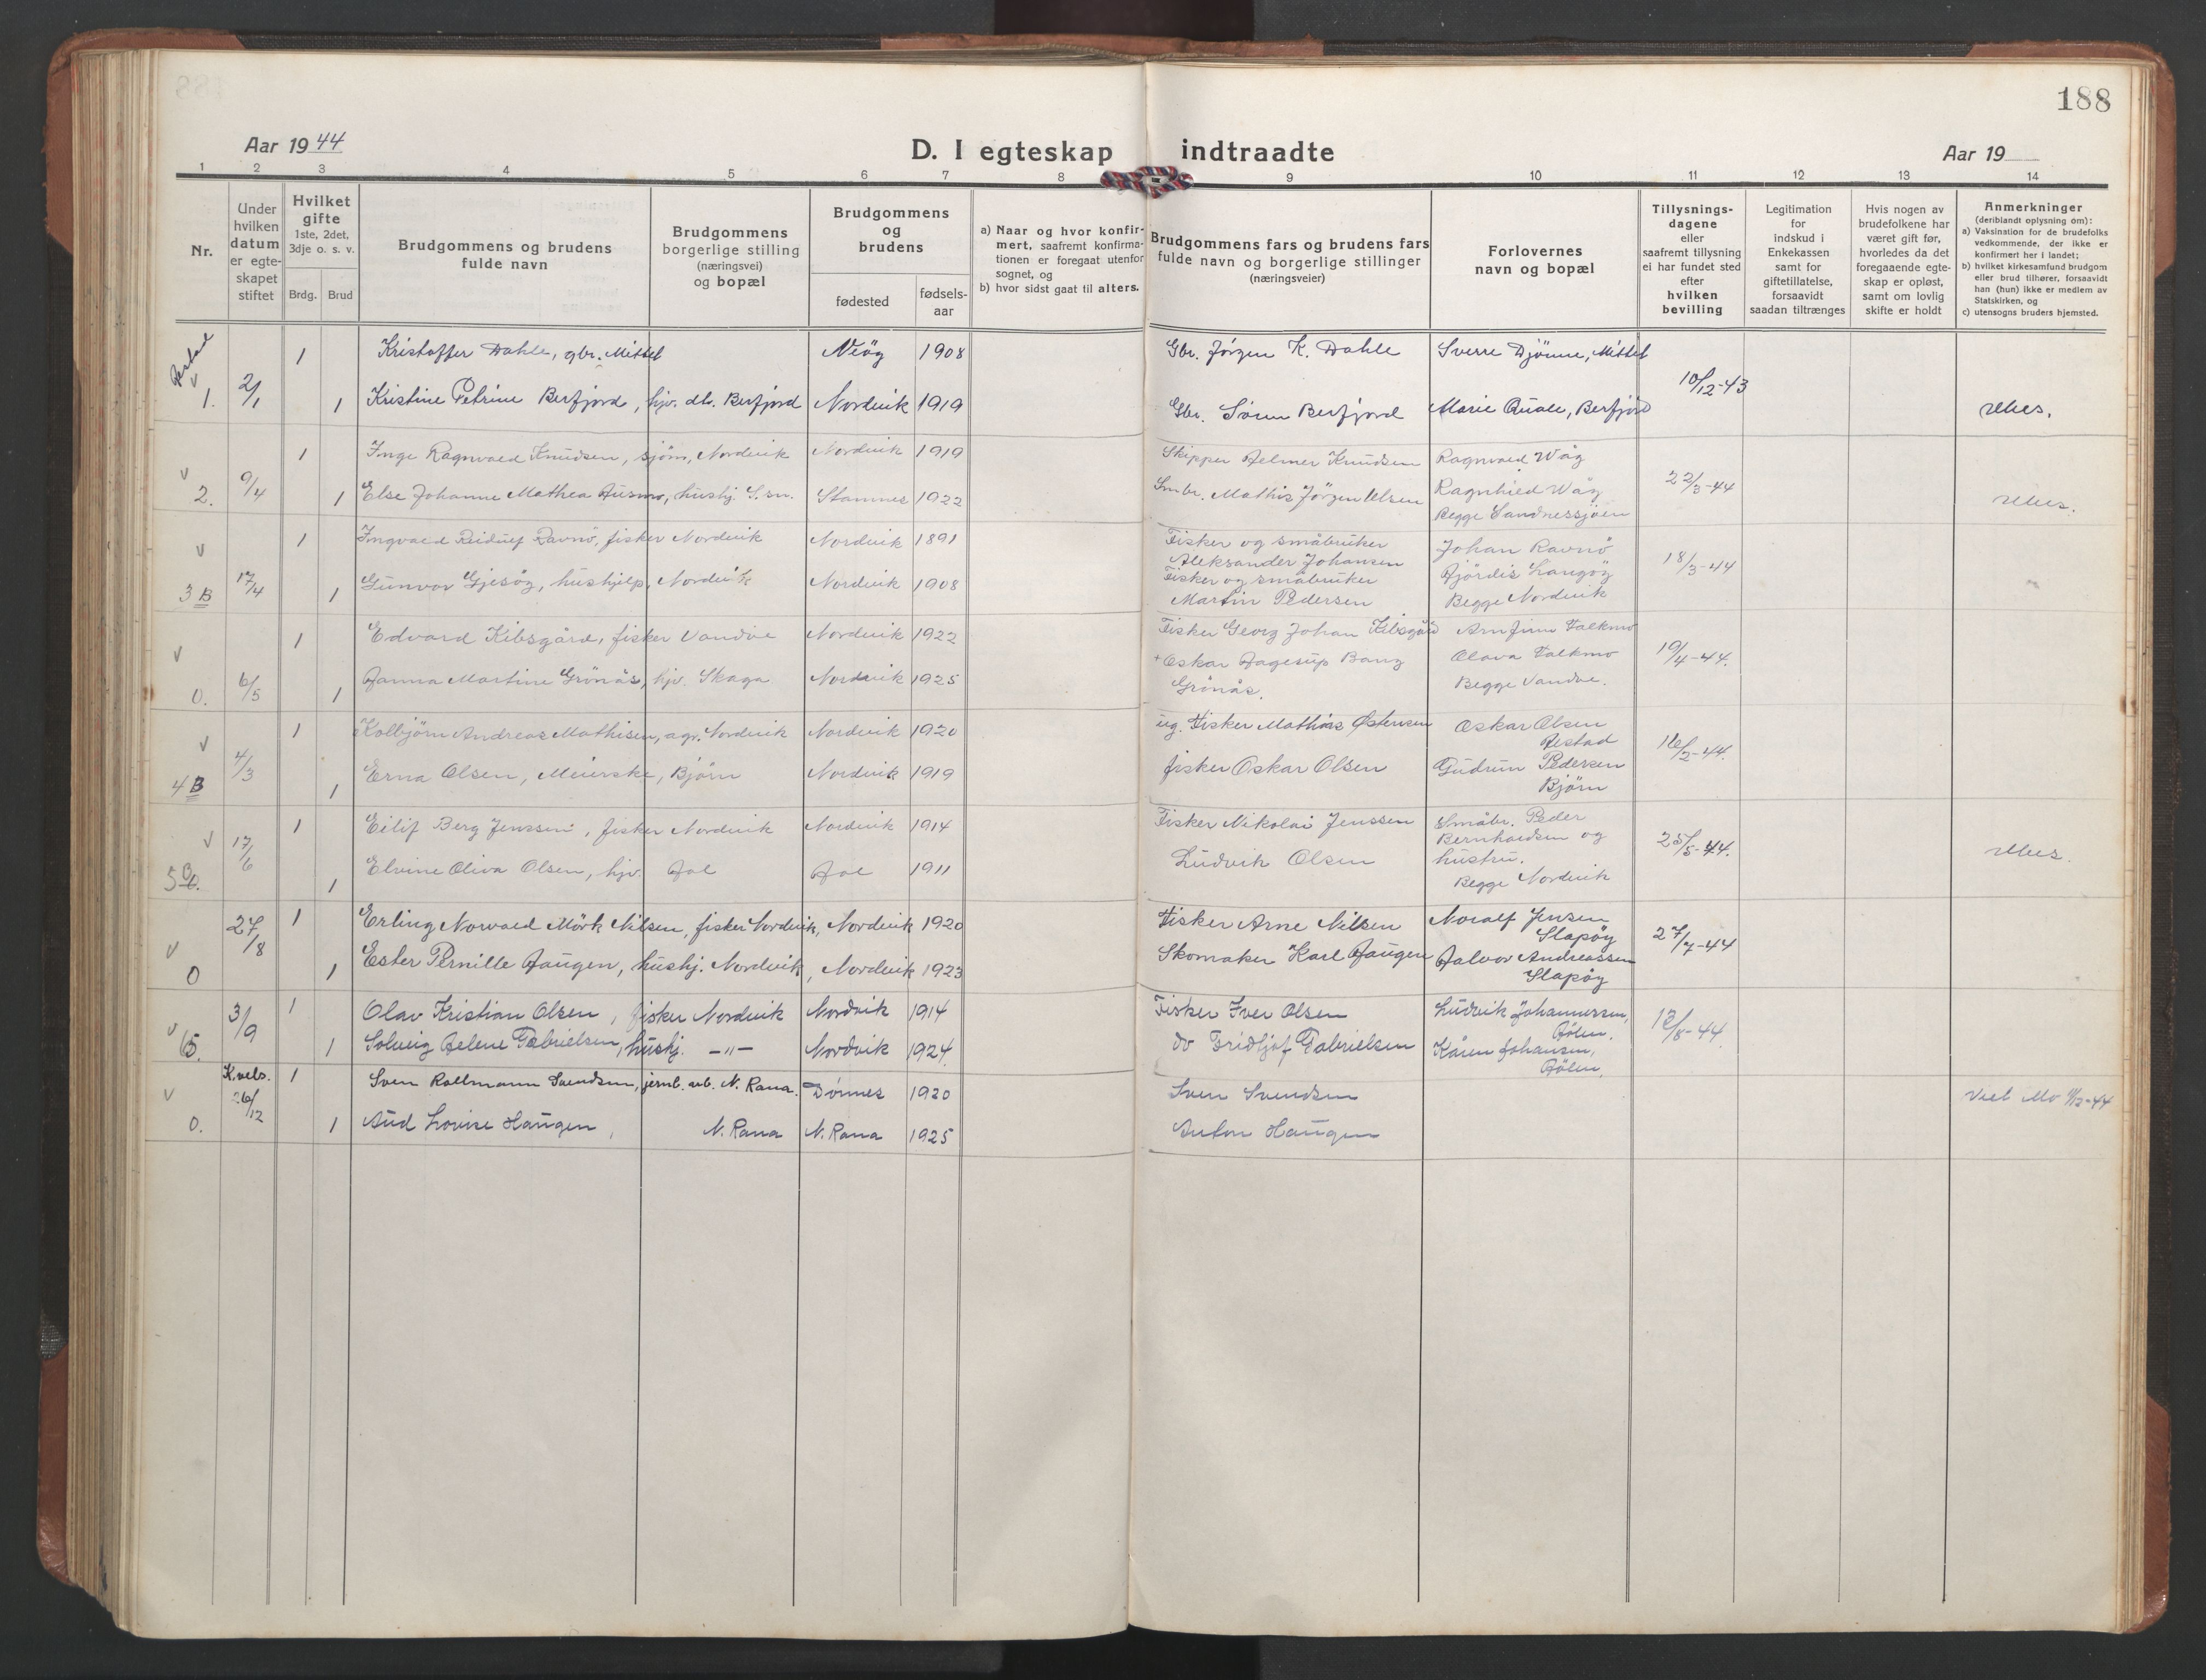 188
Aar 1944
D. I egteskap indtraadte
Aar 19
1 2 3 4 5 6 7 8 9 10 11 12 13 14
Nr.
Under hvilken datum er egte-skapet stiftet
Hvilket gifte
1ste, 2det, 3dje o. s. v.
Brdg. Brud
Brudgommens og brudens fulde navn
Brudgommens borgerlige stilling (næringsvei) og bopæl
Brudgommens og brudens
fødested
fødsels-aar
a) Naar og hvor konfir-mert, saafremt konfirma-tionen er foregaat utenfor sognet, og
b) hvor sidst gaat til alters.
Brudgommens fars og brudens fars fulde navn og borgerlige stillinger (næringsveier)
Forlovernes navn og bopæl
Tillysnings-dagene eller saafremt tillysning ei har fundet sted efter hvilken bevilling
Legitimation for indskud i Enkekassen samt for giftetillatelse, forsaavidt saadan tiltrænges
Hvis nogen av brudefolkene har været gift før, hvorledes da det foregaaende egte-skap er opløst, samt om lovlig skifte er holdt
Anmerkninger
(deriblandt oplysning om):
a) Vaksination for de brudefolks vedkommende, der ikke er konfirmert her i landet;
b) hvilket kirkesamfund brudgom eller brud tilhører, forsaavidt han (hun) ikke er medlem av Statskirken, og
c) utensogns bruders hjemsted.
1 Kristoffer Dahle, gbr. Mittet 1908 Gbr. Jörgen K. Dahle Sverre Djönne, Mittet
v 1. 2/1 1 Kristine Petrine Berfjord, hjv. dtr. Berfjord Nordvik 1919 Gbr. Sören Berfjord Marie Quale, Berfjord 10/12-43
1 Inge Ragnvald Knudsen, sjöm, Nordvik Nordvik 1919 Skipper Helmer Knudsen Ragnvald Wåg
v 2. 9/4 1 Else Johanne Mathea Husmo, hushj. S.sn. Stamnes 1922 Smbr. Mathis Jörgen Ragnhild Wåg 22/3-44
Begge Sandnessjöen
v 1 Ingvald Reidulf Ravnö, fisker Nordvik Nordvik 1891 Fisker og småbruker Aleksander Johansen Johan Ravnö
3 B 17/4 1 Gunvor Gjesöy, hushjelp, Nordvik Nordvik 1908 Fisker og småbruker Martin Pedersen Hjördis Langöy 18/3-44
Begge Nordvik
v 1 Edvard Kibsgård, fisker Vandve Nordvik 1922 Fisker Georg Johan Kibsgård Arnfinn Falkmo
0. 6/5 1 Hanna Martine Grönås, hjv. Skaga Nordvik 1925 + Oskar Hagerup Bang Grönås. Olava Falkmo 19/4-44.
Begge Vandve.
v 1 Kolbjörn Andreas Mathisen, agr. Nordvik Nordvik 1920 ug. Fisker Mathias Østensen Oskar Olsen
4 B 4/3 1 Erna Olsen, Meierske, Björn Nordvik 1919 fisker Oskar Olsen Gudrun Pedersen Björn 16/2-44.
v 1 Eilif Berg Jenssen, fisker Nordvik Nordvik 1914 Fisker Nikolai Jenssen Småbr. Peder Bernhardsen og hustru.
17/6 1 Elvine Oliva Olsen, hjv. Hol Hol 1911 Ludvik Olsen Begge Nordvik 25/5-44.
27/8 1 Erling Norvald Mörk Nilsen, fisker Nordvik, Nordvik 1920 Fisker Arne Nilsen Noralf Jensen Slapöy
v 0 1 Ester Pernille Haugen, hushj. Nordvik, Nordvik 1923 Skomaker Karl Haugen Halvor Andreassen Slapöy 27/7-44
3/9 1 Olav Kristian Olsen, fisker Nordvik Nordvik 1914 Fisker Iver Olsen Ludvik Johannessen, Hölen.
v 1 Solveig Helene Gabrielsen, hushj. —"— Nordvik 1924 do Fridtjof Gabrielsen Kåren Johansen, Hölen.
K.vels. 1 Sven Rollmann Svendsen, jernb. arb. N. Rana. Dönnes 1920 Sven Svendsen
v 0. 26/12 1 Aud Lovise Haugen, N. Rana N. Rana 1925 Anton Haugen